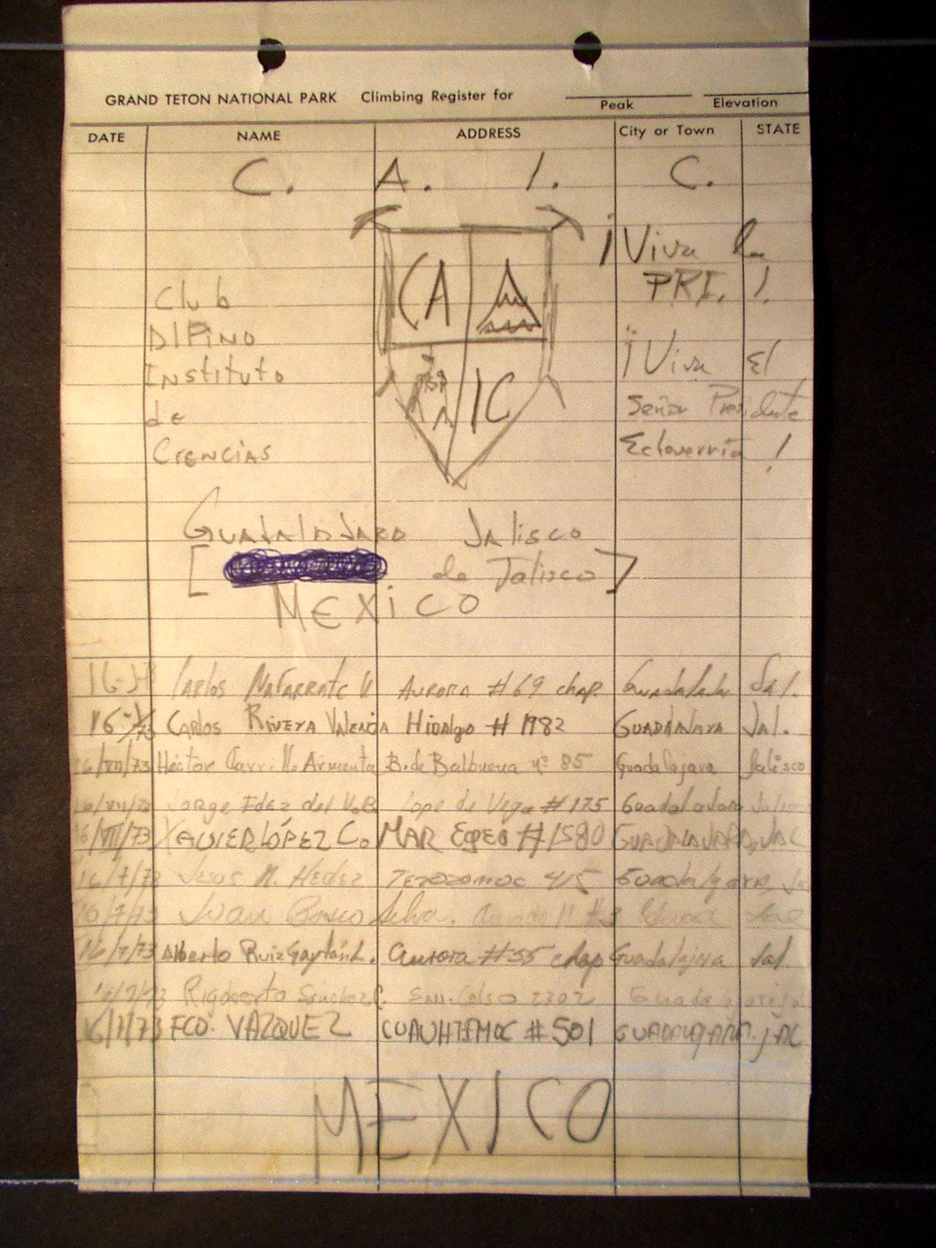 GRAND TETON NATIONAL PARK Climbing Register for Peak Elevation
DATE NAME ADDRESS City or Town STATE
C. A. I. C.
CA
IC
¡Viva la
PRI. !
Club
Alpino
Instituto
de
Ciencias
¡Viva El
Señor Presidente
Echeverría !
Guadalajara Jalisco
[ de Jalisco ]
MEXICO
Carlos Nafarrate V Aurora #69 chap. Guadalaja Jal.
16- /73 Carlos Rivera Valencia Hidalgo #1982 Guadalajara Jal.
16/VII/73 Héctor Carrillo Armenta B. de Balbuena nº 85 Guadalajara Jalisco
16/VII/73 Jorge Fdez del Valle Lope de Vega #175 Guadalajara Jalisco
16/VII/73 XAVIER LÓPEZ C. MAR EGEO #1580 GUADALAJARA, JAL
16/7/73 Jesus M. Hedez Tezozomoc 415 Guadalajara, Ja
16/7/73 Juan Bosco Silva.
16/7/73 Alberto Ruiz Gaytán L. Aurora #55 chap Guadalajara Jal.
16/7/73 Rigoberto Sánchez San Celso 2302 Guadalajara Ja
16/7/73 FCO. VAZQUEZ CUAUHTEMOC #501 GUADALAJARA. JAL
MEXICO